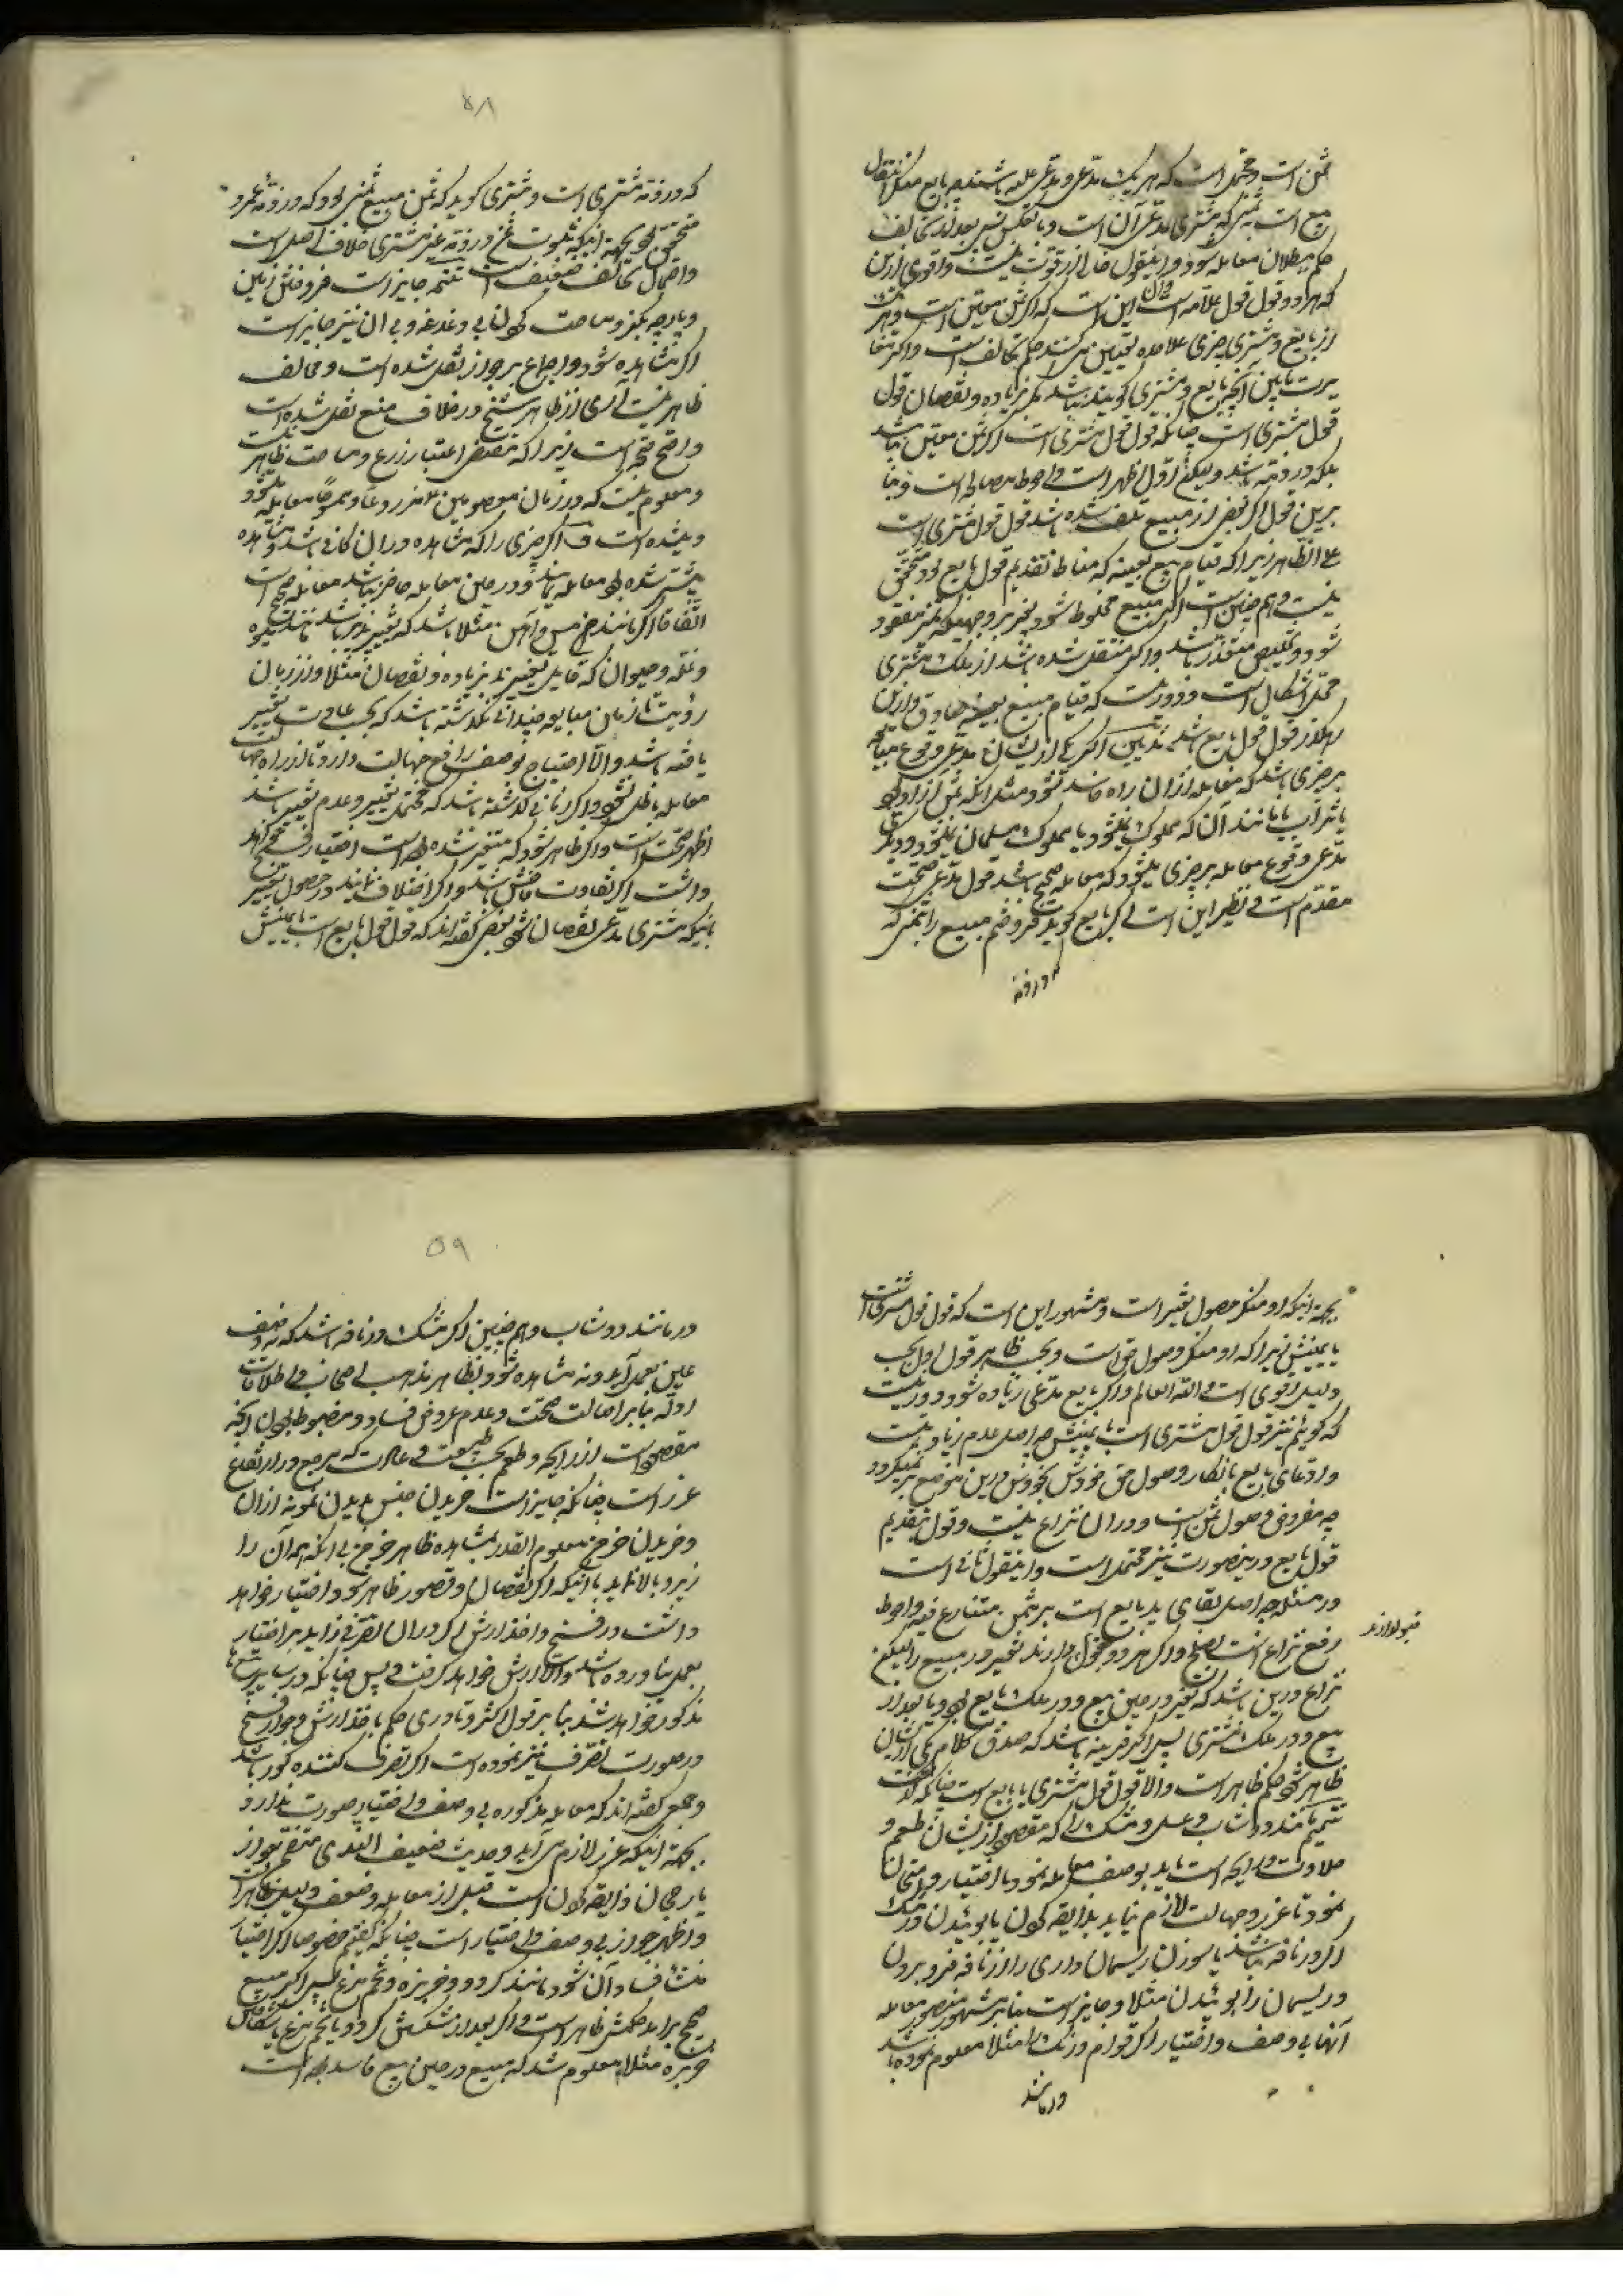 ثمن است و محتمل است که هر یک مدعی و مدعی علیه باشند چه بایع منکر انتقال
بیع است بثمنی که مشتری مدعی آن است و بالعکس پس بعد از تحالف
حکم ببطلان معامله شود و اینقول خالی از قوت نیست و اقوی ازین
که هر دو قول قول علامه است این است که اگر ثمن معین است و هر یک
از بایع و مشتری چیزی علاحده تعیین می کنند حکم تحالف است و اگر مغا
یرت ما بین آنچه بایع و مشتری گویند نباشد مگر بزیاده و نقصان قول
قول مشتری است چنانکه قول قول مشتری است اگر ثمن معین نباشد
بلکه در ذمه باشد ولیکن اول اظهر است و احوط مصالحه است و بنا
برین قول اگر بعضی از مبیع تلف شده باشد قول قول مشتری است
علی الظاهر زیرا که قیام مبیع بعینه که مناط تقدیم قول بایع بود متحقق
نیست و هم چنین است اگر مبیع مخلوط شود بغیر بر وجهیکه تمیز مفقود
شود و تخلیص متعذر باشد و اگر منتقل شده باشد از ملک مشتری
محل اشکال است و دور نیست که قیام مبیع بعینه صادق و ازین
راهگذر قول قول بایع باشد تذنیب اگر یکی از ایشان مدعی وقوع مبایعه
بر چیزی باشد که معامله از آن راه فاسد شود مثل آنکه ثمن آزاد بود
یا شراب یا مانند آن که مملوک نشود یا مملوک مسلمان نشود و دیگری
مدعی وقوع معامله بر چیزی بشود که معامله صحیح باشد قول مدعی صحت
مقدم است و نظیر این است اگر بایع گوید فروختم مبیع را بثمنی که
در ذمه
۵۸
که در ذمه مشتری است و مشتری گوید که ثمن مبیع ثمنی بود که در ذمه عمرو
متحقق بود بجهة اینکه ثبوت ثمن در ذمه غیر مشتری خلاف اصل است
و احتمال تحالف ضعیف است تتمه جایز است فروختن زمین
و پارچه بگز و مساحت کردن بی دغدغه و بی آن نیز جایز است
اگر مشاهده شود و اجماع بر جواز نقل شده است و مخالف
ظاهر نیست آری از ظاهر شیخ در خلاف منع نقل شده است
واضح صحت است زیرا که مقتضی اعتبار زرع و مساحت ظاهر نیست
و معلوم نیست که در زمان معصومین مزروعا و ممسوحا معامله شود
و نشده است و اگر چیزی را که مشاهده در آن کافی باشد و مشاهده
پیشتر شده بود معامله نمایند و در حین معامله حاضر نباشد معامله صحیح است
اتفاقا اگر مانند مس و آهن مثلا باشد که تغییر پذیر نباشد یا مانند میوه
و غله و حیوان که قابل تغییر به زیاده و نقصان مثلا و از زمان
رؤیت تا زمان مبایعه چندانی نگذشته باشد که بحسب عادت تغییر
یافته باشد و الا احتیاج بوصف رافع جهالت دارد تا از راه جهالت
معامله باطل نشود و اگر زمانی گذشته باشد که محتمل تغییر و عدم تغییر باشد
اظهر صحت است و اگر ظاهر شود که متغیر شده بوده است اختیار فسخ خواهد
داشت اگر تفاوت فاحش باشد و اگر اختلاف نمایند در حصول تغییر
بانیکه مشتری مدعی نقصان شود بعضی گفته اند که قول قول بایع است با یمینش
بجهة اینکه او منکر حصول تغییر است و مشهور این است که قول قول مشتری است
با یمینش زیرا که او منکر وصول حق است و بحسب ظاهر قول اول بحسب
دلیل اقوی است و الله العالم و اگر بایع مدعی زیاده شود دور نیست
که گوئیم نیز قول قول مشتری است با یمینش چه اصل عدم زیادتیست
و ادعای بایع بانکار وصول حق خودش بخودش درین موضع بر نمیگردد
چه مفروض وصول ثمن است و در آن نزاع نیست و قول بتقدیم
قول بایع در ینصورت نیز محتمل است و اینقول ثانی است
در مسئله چه اصل بقای ید بایع است بر ثمن متنازع فیه و احوط
رفع نزاع است بصلح و اگر هر دو قبول دارند تغییر در مبیع را لیکن
قبول دارند
نزاع درین باشد که تغیر در حین بیع و در ملک بایع بود و یا بعد از
بیع و در ملک مشتری پس اگر قرینه باشد که صدق کلام یکی از ایشان
ظاهر شود حکم ظاهر است و الا قول قول مشتری یا بایع است چنانکه گذشت
تتمیم مانند دوشاب و عسل و مشک را که مقصود از ایشان طعم و
حلاوت و رایحه است باید بوصف معامله نمود یا اختیار و امتحان
نمود تا غرر و جهالت لازم نیاید بذایقه کردن یا بوئیدن و مشک
اگر در نافه باشد یا سوزن ریسمان داری را از نافه فرو بردن
و ریسمان را بوئیدن مثلا و جایز است بنا بر مشهور منصور معامله
آنها بی وصف و اختیار اگر قوام و رنگ و را مثلا معلوم نموده باشد
در مانند
۵۹
در مانند دوشاب و هم چنین اگر مشک در نافه باشد که نه وصف
عین بعمل آید و نه مشاهده شود بظاهر مذهب اصحاب و اطلاقات
ادله بنابر اصالت صحت و عدم عروض فساد و مضبوط بودن آنچه
مقصود است از رایحه و طعم بحسب طبیعت و عادت که مرجع در ارتفاع
غرر است چنانکه جایز است خریدن جنس بدیدن نمونه از آن
و خریدن خرمن معلوم القدر بمشاهده ظاهر خرمن بی آنکه همه آن را
زیر و بالا نماید بانیکه اگر نقصان و قصور ظاهر شود اختیار خواهد
داشت در فسخ و اخذ ارش اگر در آن تصرفی زاید بر اختیار
بعمل نیاورده باشد و الا ارش خواهد گرفت و بس چنانکه در سایر بیعها
مذکور خواهد شد بنا بر قول اکثر و نادری حکم باخذ ارش و جواز فسخ
در صورت تصرف نیز نموده است اگر تصرف کننده کور باشد
و جمعی گفته اند که معامله مذکوره بی وصف و اختیار صورت ندارد
بجهة اینکه غرر لازم می آید و حدیث ضعیف السندی متضمن جواز
یا رجحان ذایقه کردن است قبل از معامله و ضعف دلیل ظاهر است
و اظهر جواز بی وصف و اختیار است چنانکه گفتیم خصوصا اگر اختیار
منشأ فساد آن شود مانند گردو و خربزه و تخم مرغ پس اگر مبیع
صحیح برآید حکمش ظاهر است و اگر بعد از شکستن گردو یا تخم مرغ یا شکافتن
خربزه مثلا معلوم شد که مبیع در حین بیع فاسد بوده است